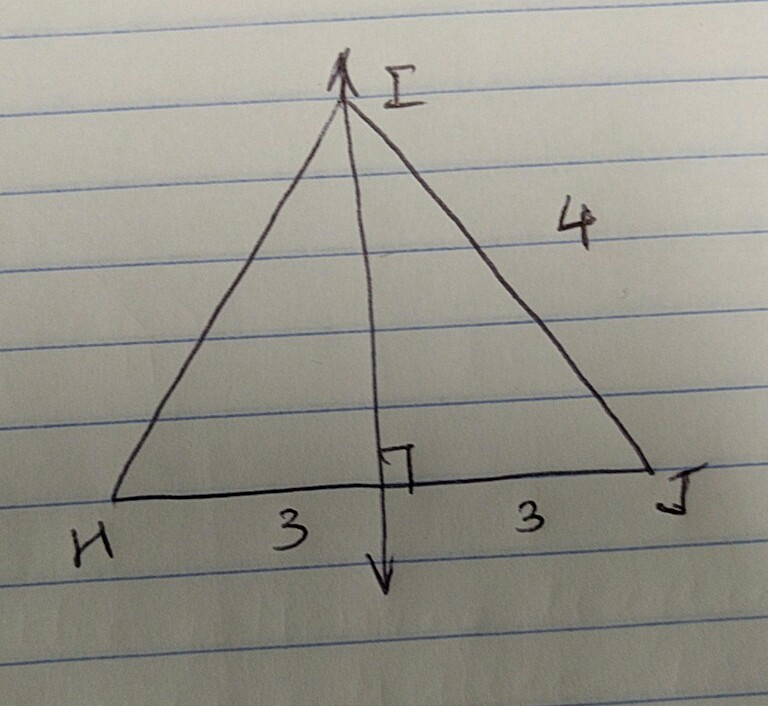 I
4
H 3 3 J